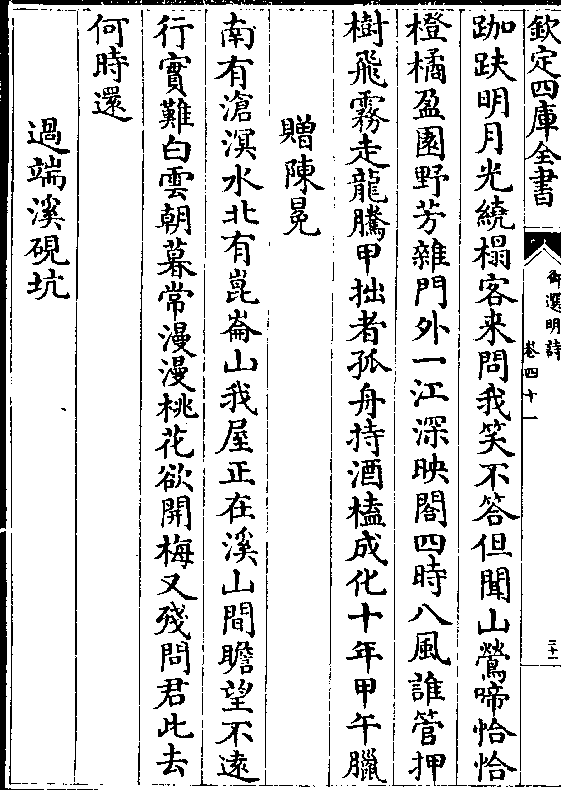 欽定四庫全書
御選明詩
卷四十一
三十一
跏趺明月光繞榻客来問我笑不答但聞山鶯啼恰恰
橙橘盈園野芳雜門外一江深映閣四時八風誰管押
樹飛霧走龍騰甲拙者孤舟持酒榼成化十年甲午臘
贈陳冕
南有滄溟水北有崑崙山我屋正在溪山間瞻望不逺
行實難白雲朝暮常漫漫桃花欲開梅又殘問君此去
何時還
過端溪硯坑